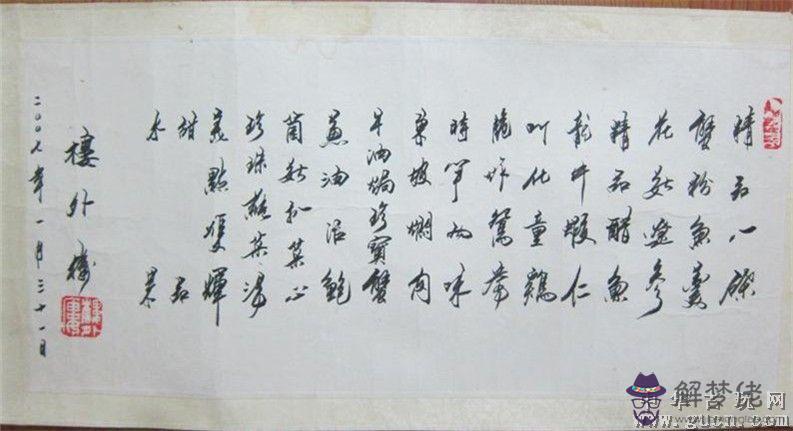 精品八碟
蟹粉魚羹
花菇遼參
精品醋魚
龍井蝦仁
叫化童鷄
脆炸鴛鴦
時筍兩味
東坡燜肉
牛油焗珍寶蟹
蔥油活鮑
菌菇扒菜心
珍珠蒓菜湯
美點雙輝
甜品
水果
樓外樓
二〇〇七年一月三十一日
解梦佬
华古玩网
www.gucn.com